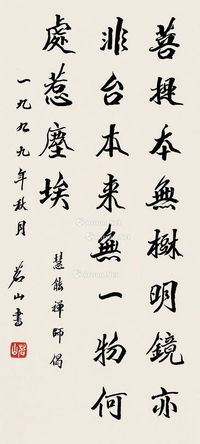 菩提本無樹明鏡亦
非台本来無一物何
處惹塵埃
慧能禅師偈
一九九九年秋月
茗山書